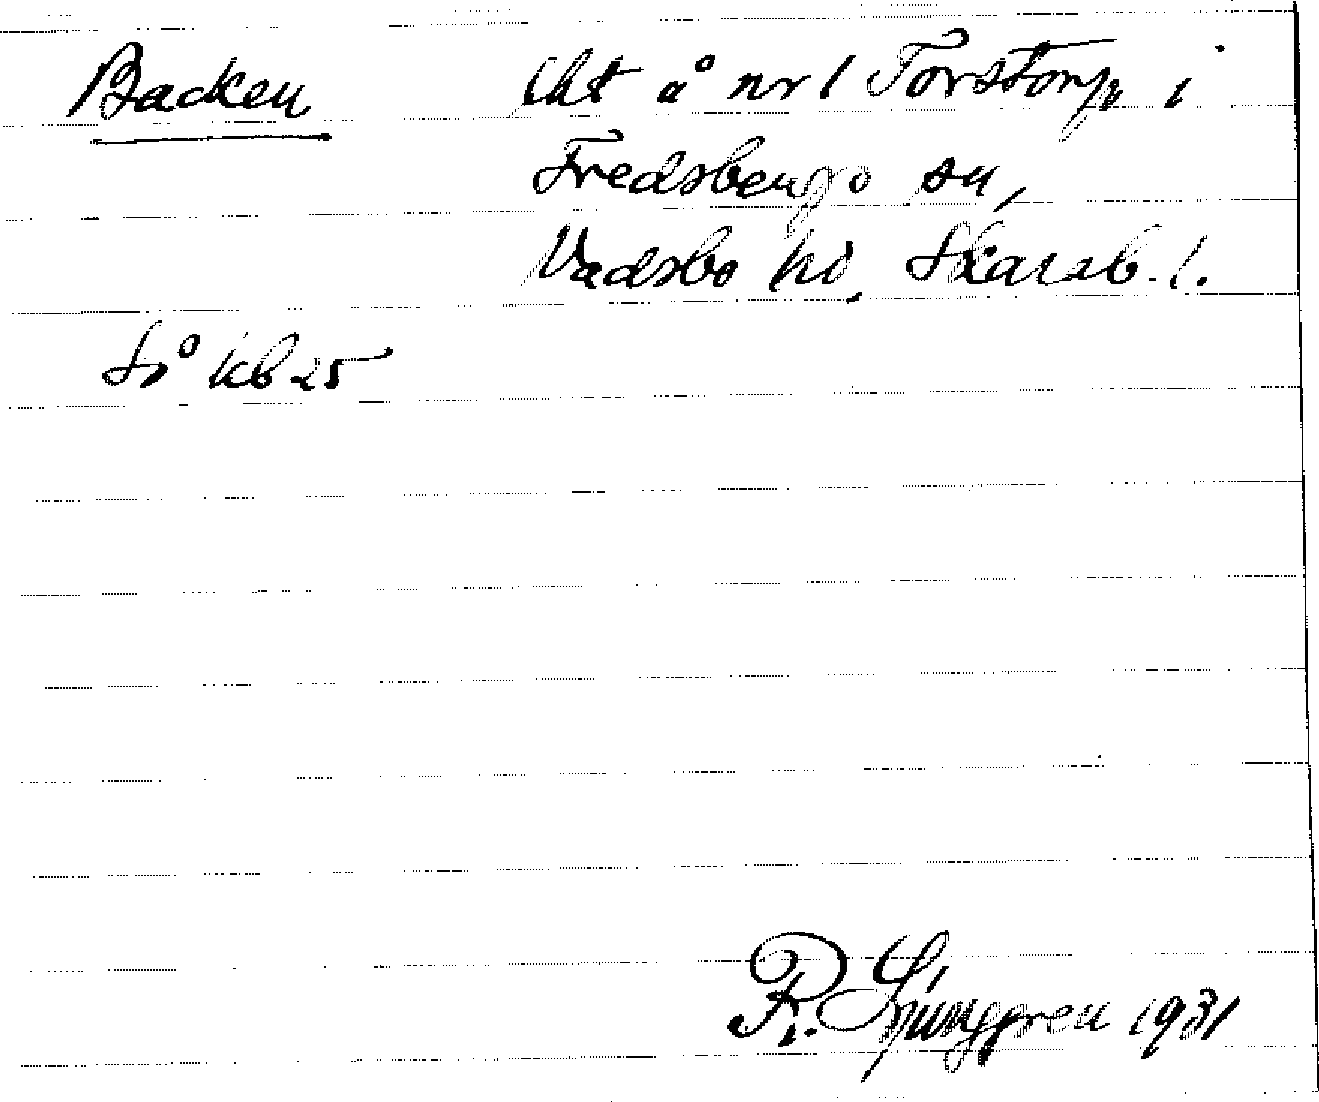 Backen lht å nr 1 Torstorp i
Fredsbergs sn,
Vadsbo hd, Skarab. l.
Så kb 25
R. Ljunggren 1931